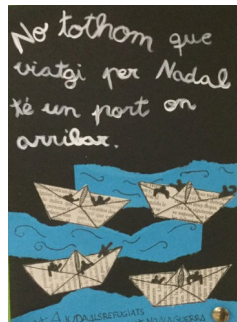 No tothom que
viatgi per Nadal
té un port on
arribar.